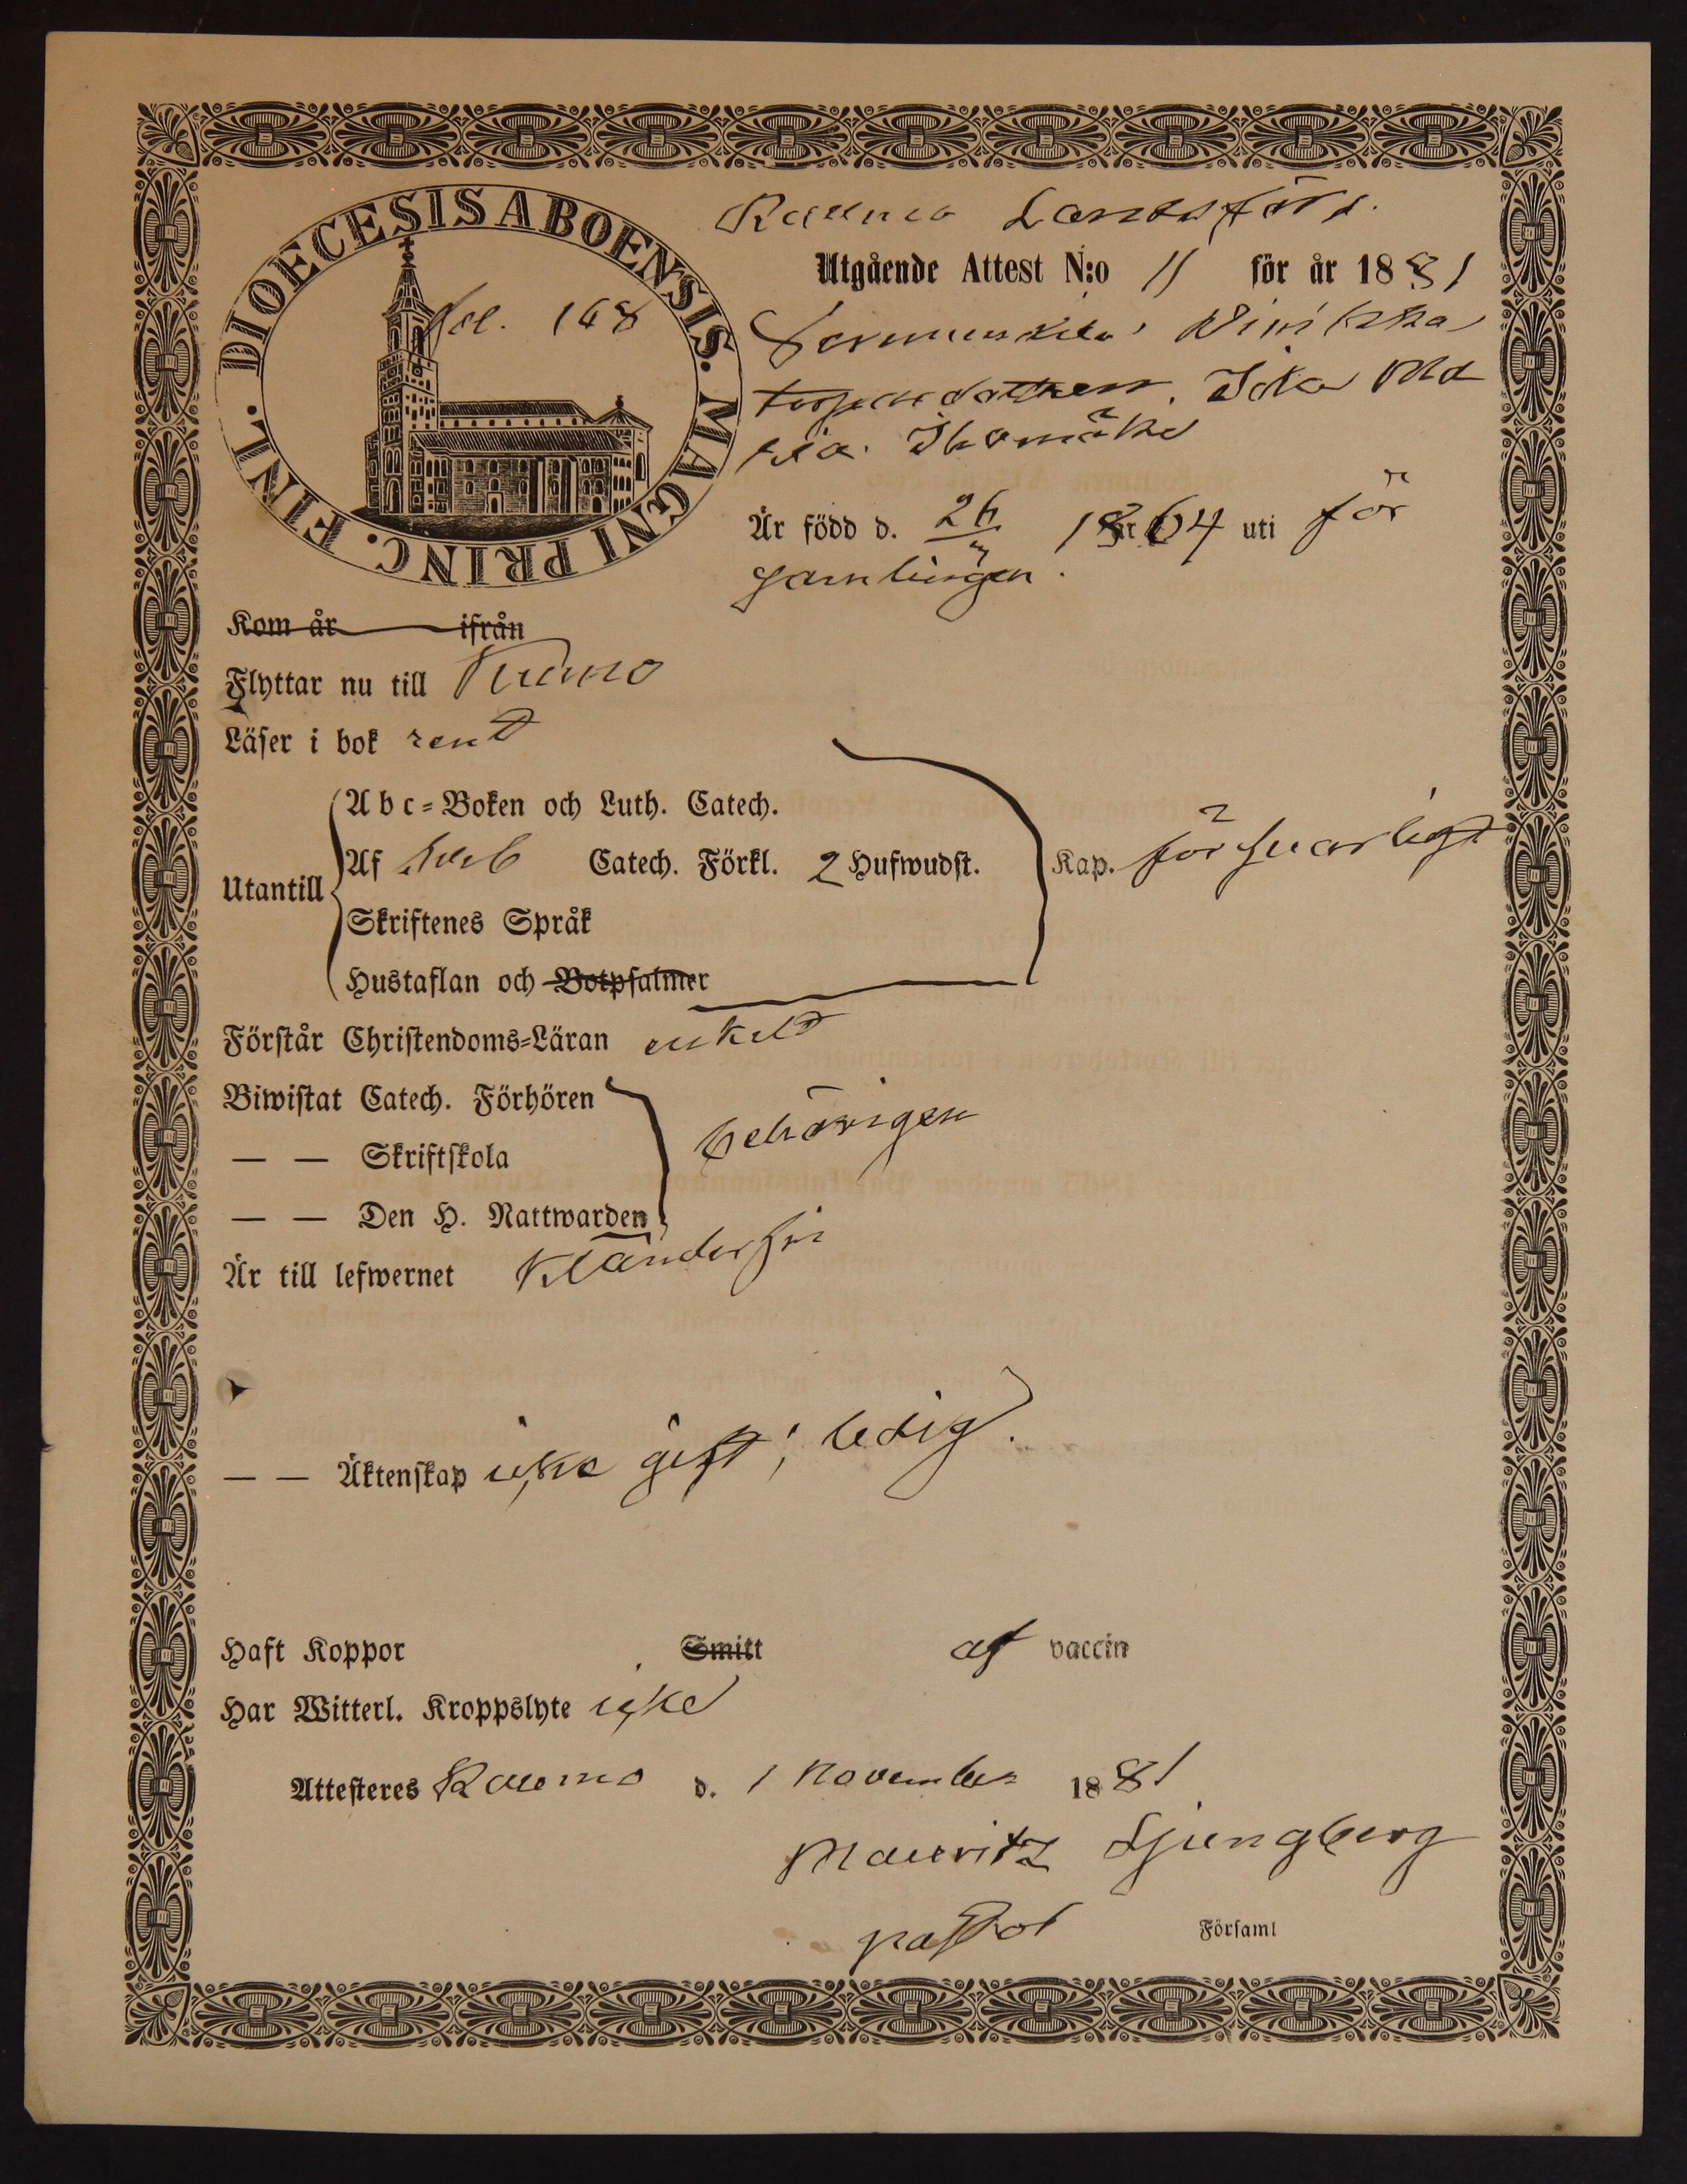 DIOECESIS ABOENSIS. MAGNI PRINC. FINL.
fol. 168
Raumo Landsförs.
Utgående Attest N:o 11 för år 1881
torparedottren. Ida Ma
ria
Är född d. 26/3 1864 uti för
samlingen.
Kom år ifrån
Flyttar nu till Kumo
Läser i bok rent
Utantill
Abc-Boken och Luth. Catech.
Af Sveb Catech. Förkl. 2 Hufwudst. Kap. försvarligt
Skriftenes Språk
Hustaflan och Botpsalmer
Förstår Christendoms-Läran enkelt
Biwistat Catech. Förhören
— — Skriftskola behörigen
— — Den H. Nattwarden
Är till lefwernet klanderfri
— — Äktenskap icke gift; ledig.
Haft Koppor Smitt af vaccin
Har Witterl. Kroppslyte icke
Attesteres Raumo d. 1 November 1881
Mauritz Ljungberg
pastor Församl